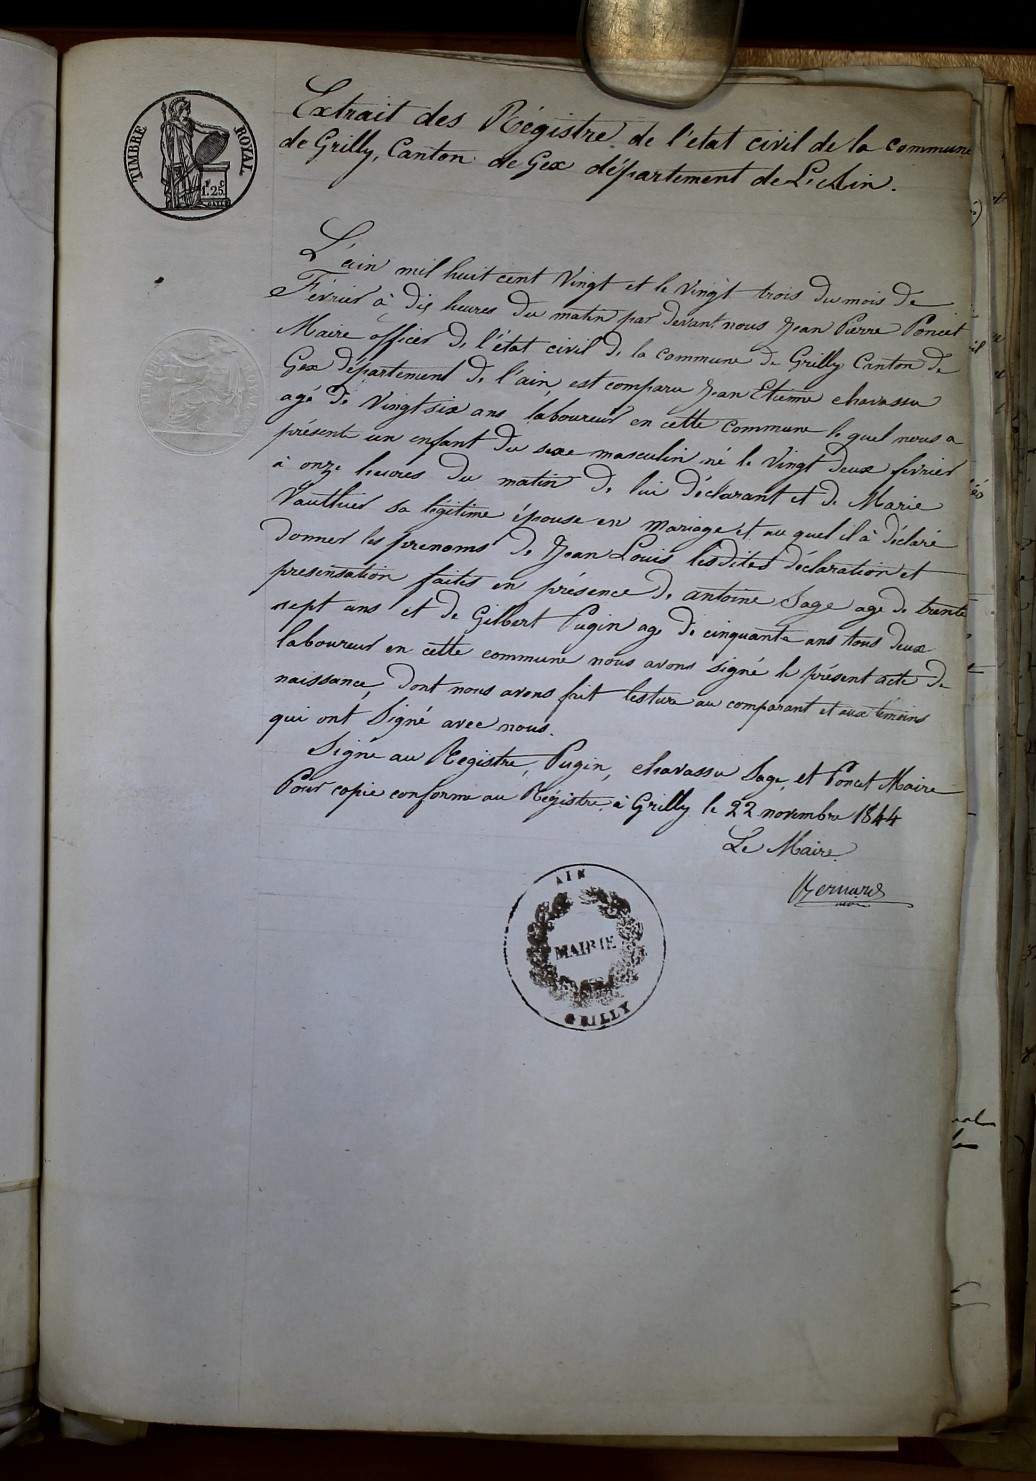 TIMBRE ROYAL
1.F 25.C
Extrait des Régistre de l'état civil de la commune
de Grilly, Canton de Gex département de L'Ain.
L'ain mil huit cent Vingt et le Vingt trois du mois de
Février à dix heures du matin par devant nous Jean Pierre Poncet
Maire officer de l'état civil de la commune de Grilly Canton de
Gex département de l'ain, est comparu Jean Etienne chavassu
agé de Vingt six ans laboureur en cette commune le quel nous a
présenté un enfant du sexe masculin né le Vingt deux fevrier
à onze heures du matin de lui déclarant et de Marie
Vaulthier sa légitime épouse en mariage et au quel il à déclaré
donner les prenoms de Jean Louis lesdites déclaration et
presensation faites en présence de antoine Sage age de trente
sept ans et de Gilbert Pugin age de cinquante ans tous deux
laboureur en cette commune nous avons signé le présent acte de
naissance, dont nous avons fait lesture au comparant et aux témoins
qui ont Signé avec nous.
Signé au Registre, Pugin, chavassu Sage, et Poncet Maire
Pour copie conforme au Régistre à Grilly le 22 novembre 1844
Le Maire
Bernard
AIN
MAIRIE
GRILLY